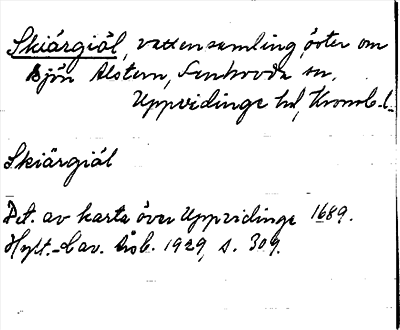 Skiärgiöl, vattensamling öster om
sjön Alstern, Lenhovda sn,
Uppvidinge hd, Kronob. l.
Skiärgiöl
Det. av karta över Uppvidinge 1689.
Hylt.-Cav. Årsb. 1929, s. 309.